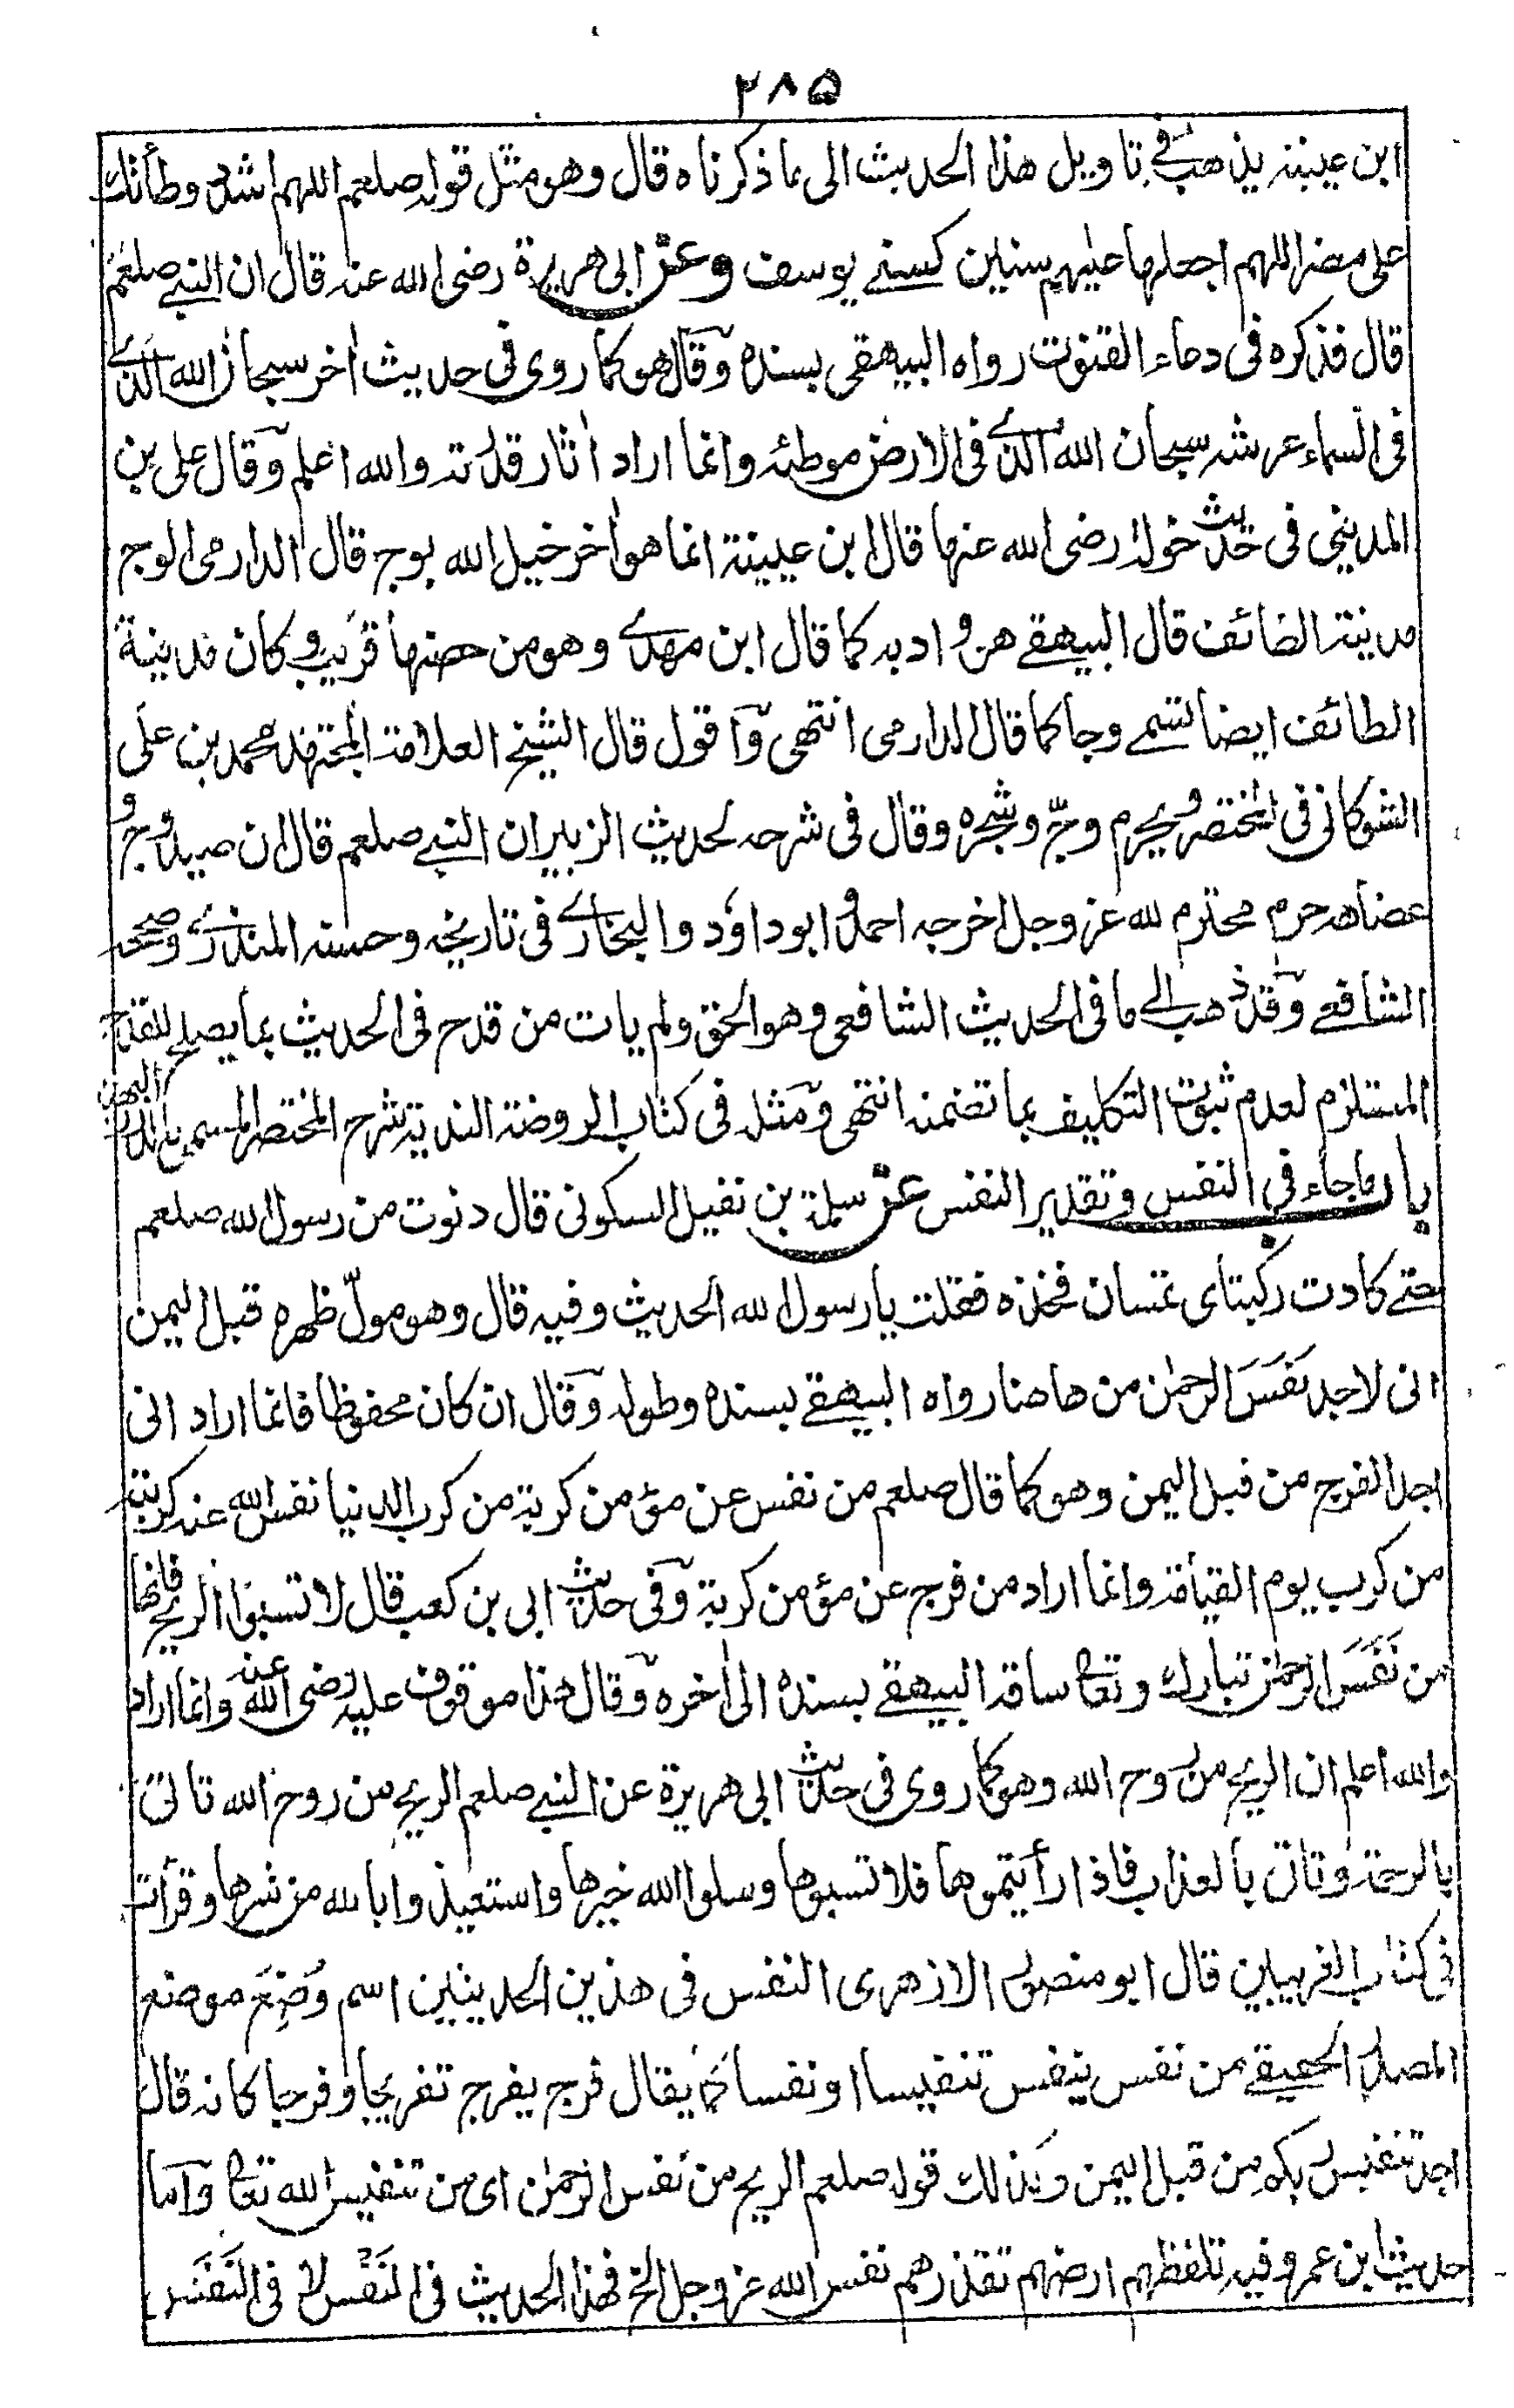 ٢٨٥
ابن عيينة يذهب في تاويل هذا الحديث الى ما ذكرناه قال وهو مثل قوله صلعم اللهم اشدد وطأتك
على مضر اللهم اجعلها عليهم سنين كسنے يوسف وعن ابى هريرة رضى الله عنه قال ان النبے صلعم
قال فذكره فى دعاء القنوت رواه البيهقى بسنده وقال هو كما روى فى حديث اخر سبحان الله الذے
فى السماء عرشه سبحان الله الذے فى الارض موطئه وانما اراد اثار قدرته والله اعلم وقال على بن
المدينى فى حديث خولة رضى الله عنها قال ابن عيينة انما هو اخر خيل الله بوج قال الدارمى الوج
مدينة الطائف قال البيهقے هن واد به كما قال ابن مهدے وهو من حصنها قريب وكان مدينة
الطائف ايضا تسمے وجا كما قال الدارمى انتهى واقول قال الشيخ العلامة المجتهد محمد بن على
الشوكانى فى المختصر ويحرم وجّ وشجره وقال فى شرحه لحديث الزبير ان النبے صلعم قال ان صيد وج و
عضاهه حرم محترم لله عز وجل اخرجه احمد وابو داود والبخارے فى تاريخه وحسنه المنذرے وصححه
الشافعے وقد ذهب الے ما فى الحديث الشافعى وهو الحق ولم يات من قدح فى الحديث بما يصلح للقدح
المستلزم لعدم ثبوت التكليف بما تضمنه انتهى ومثله فى كتاب الروضة الندية شرح المختصر المسمى بالدرر البهية
باب ماجاء في النفس وتقدير النفس عن سلمة بن نفيل السكونى قال دنوت من رسول الله صلعم
حتے كادت ركبتاى تمسان فخذه فقلت يا رسول الله الحديث وفيه قال وهو مولّ ظهره قبل اليمن
انى لاجد نَفَسَ الرحمٰن من هاهنا رواه البيهقے بسنده وطوله وقال ان كان محفوظا فانما اراد انى
اجد الفرج من قبل اليمن وهو كما قال صلعم من نفس عن مؤمن كربة من كرب الدنيا نفس الله عنه كربة
من كرب يوم القيامة وانما اراد من فرج عن مؤمن كربة وفى حديث ابى بن كعب قال لا تسبوا الريح فانها
من نَفَسَ الرحمٰن تبارك وتعا ساقه البيهقے بسنده الى اٰخره وقال هذا موقوف عليه رضى الله عنه وانما اراد
والله اعلم ان الريح من روح الله وهو كما روى فى حديث ابى هريرة عن النبے صلعم الريح من روح الله تاتى
بالرحمة وتاتى بالعذاب فاذا رأيتموها فلا تسبوها وسلوا الله خيرها واستعيذوا بالله من شرها وقرأت
فى كتاب الغريبين قال ابو منصور الازهرى النفس فى هذين الحديثين اسم وُضِعَ موضع
المصدر الحقيقے من نفس ينفس تنفيسا ونفسا كما يقال فرج يفرج تفريجا وفرجا كانه قال
اجد تنفيس ربكم من قبل اليمن وكذلك قوله صلعم الريح من نفس الرحمٰن اى من تنفيس الله تعا واما
حديث ابن عمرو فيه تلفظهم ارضهم تقذرهم نفس الله عز وجل الخ فهذا الحديث فى النَفْس لا فى النَفَس